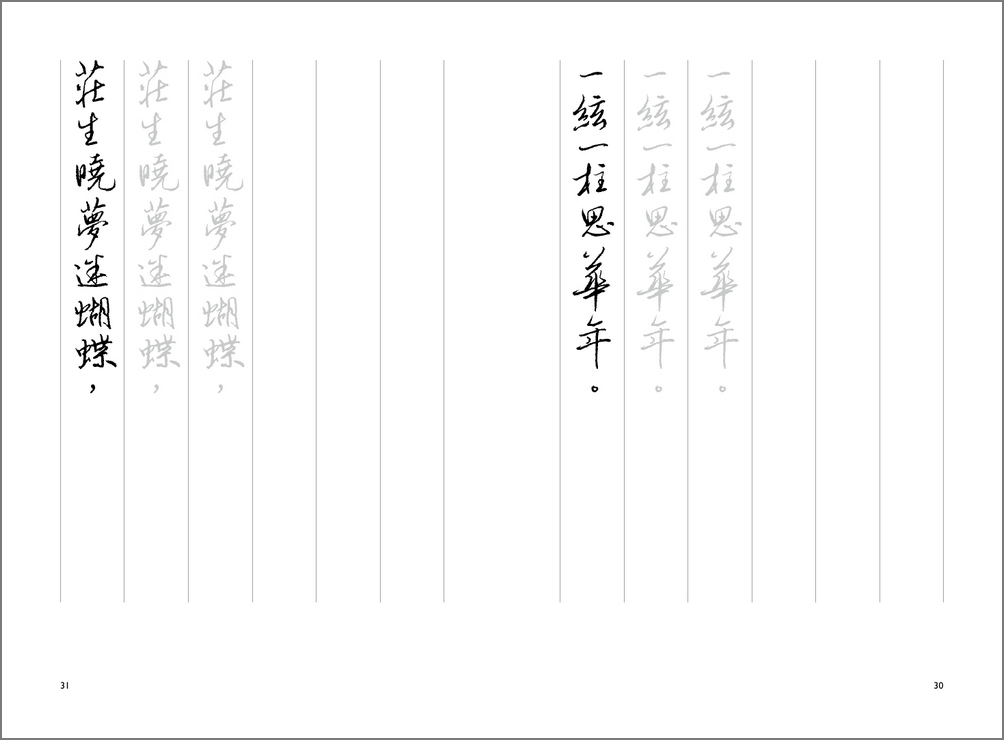 一絃一柱思華年。
一絃一柱思華年。
一絃一柱思華年。
30
莊生曉夢迷蝴蝶，
莊生曉夢迷蝴蝶，
莊生曉夢迷蝴蝶，
31